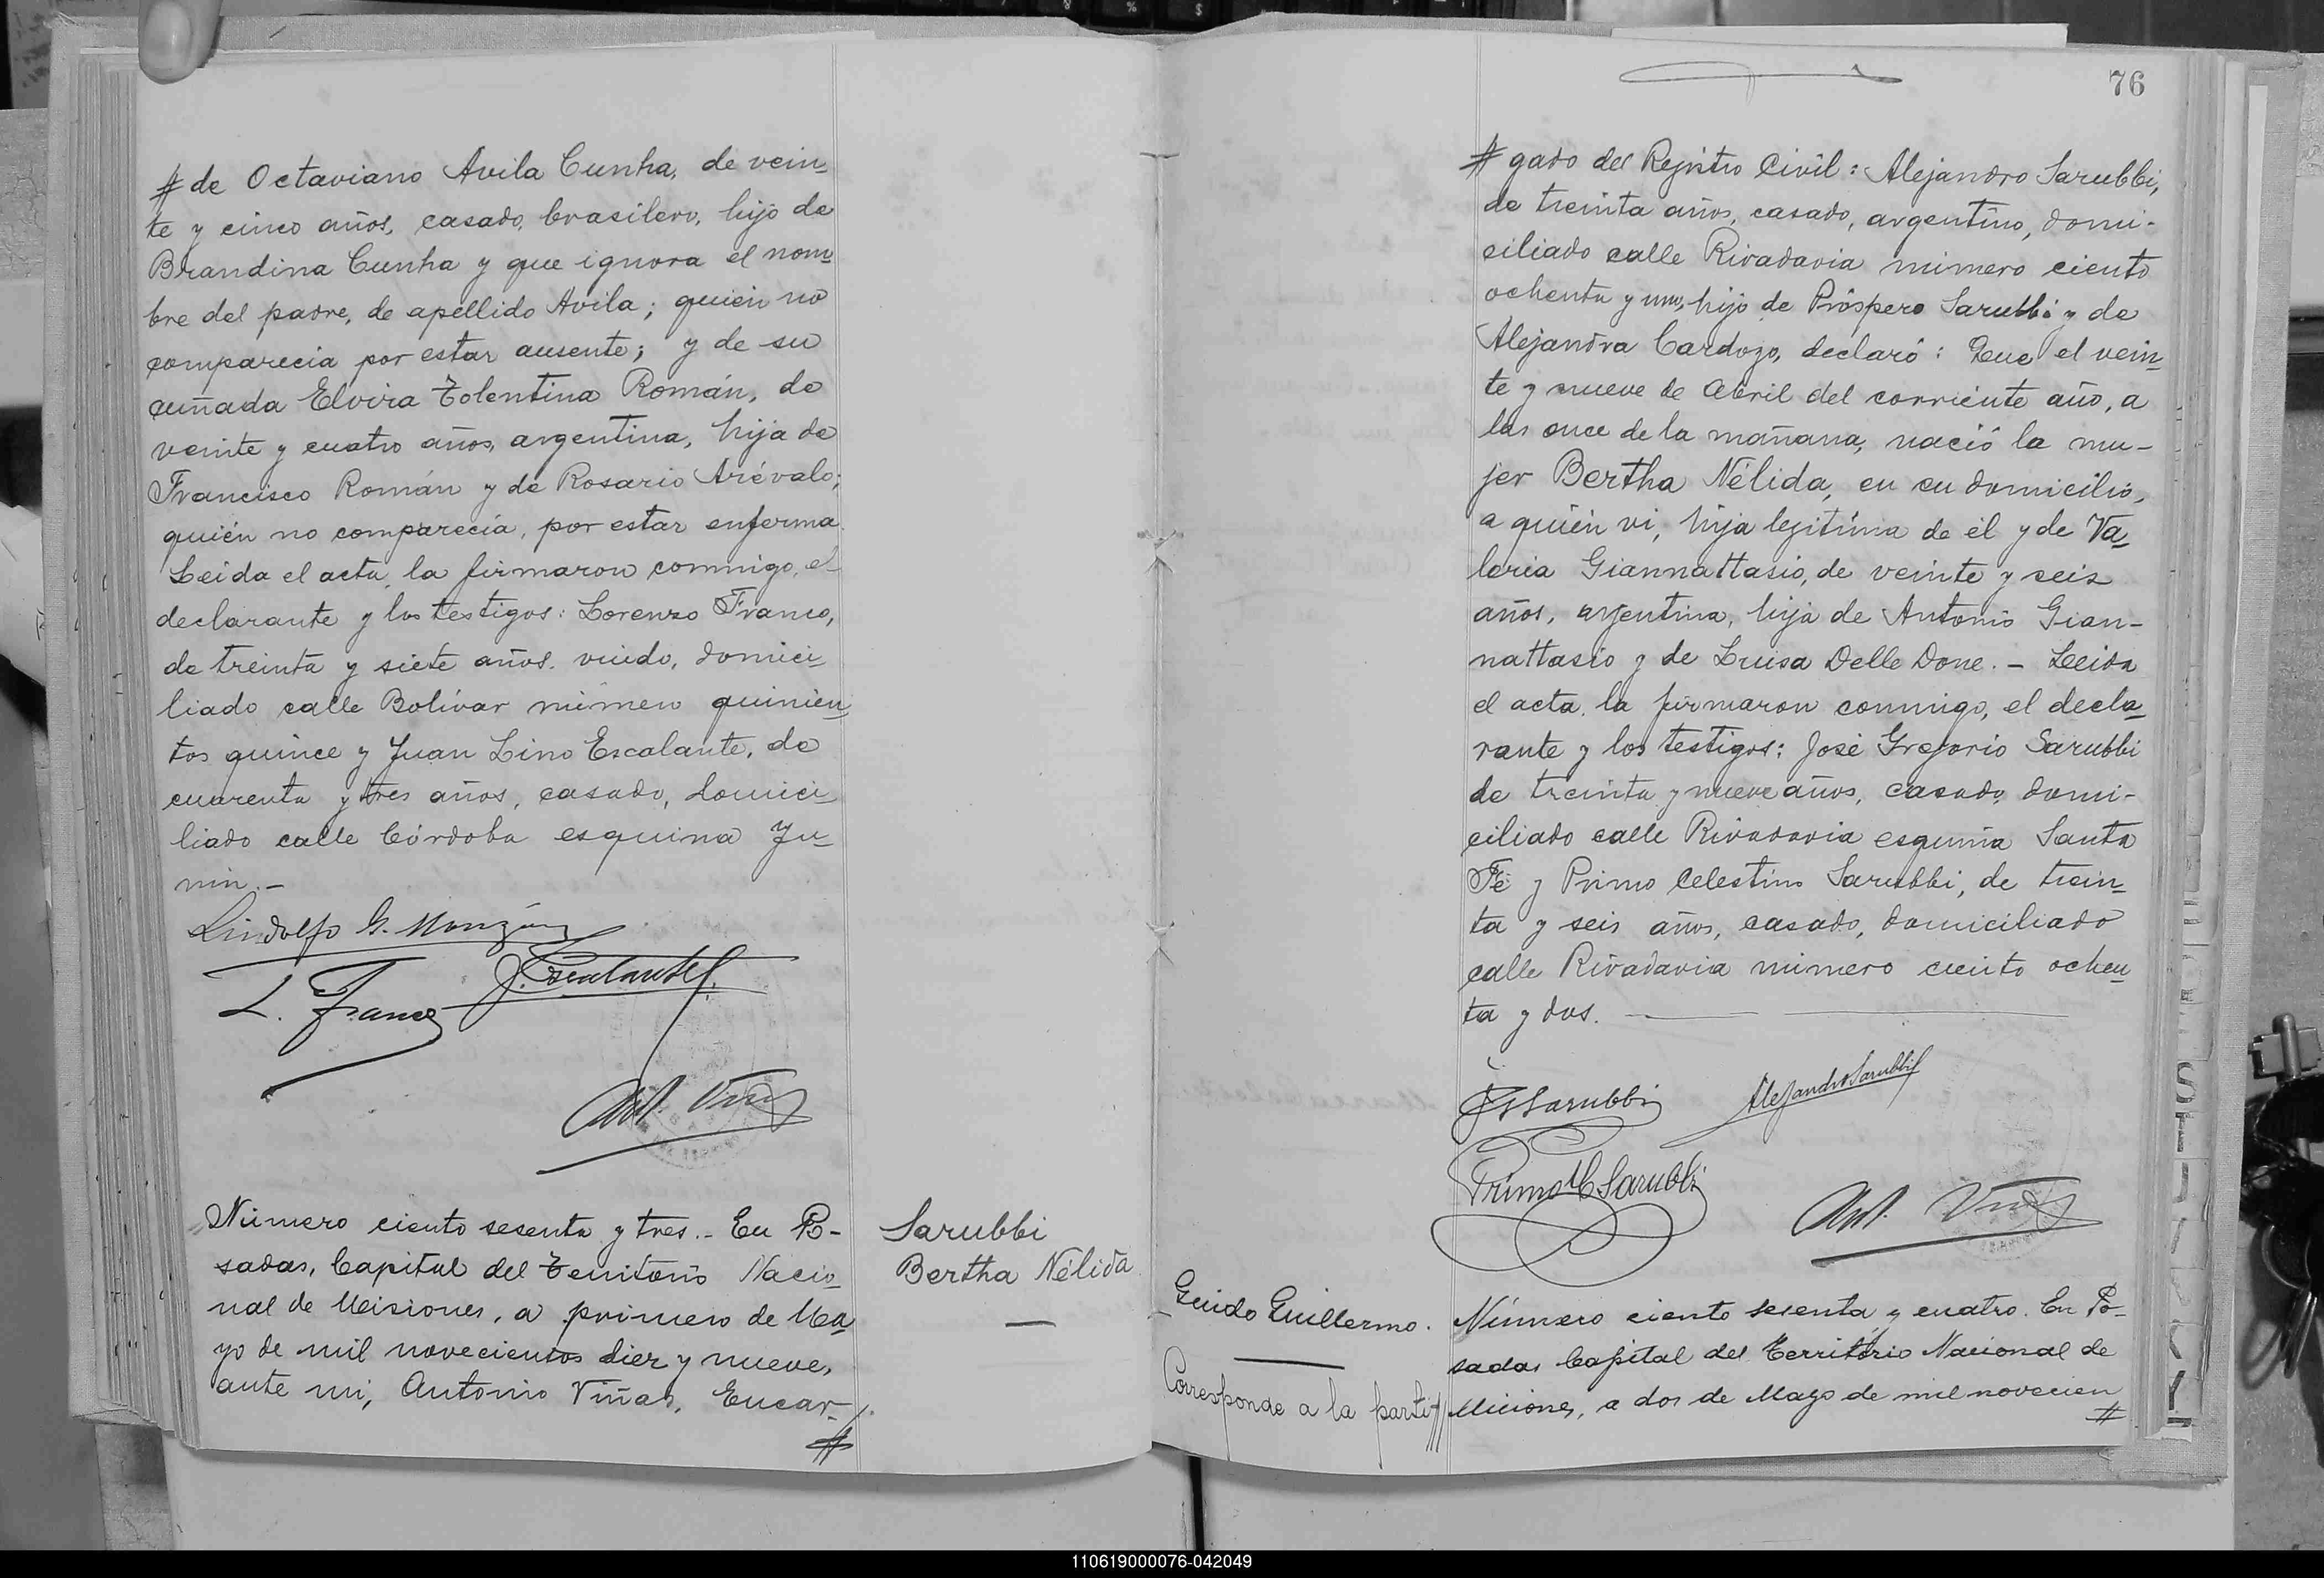 # de Octaviano Avila Cunha, de vein-
te y cinco años, casado, brasilero, hijo de
Brandina Cunha y que ignora el nom-
bre del padre, de apellido Avila; quien no
comparecia por estar ausente; y de su
cuñada Elvira Tolentina Román, de
veinte y cuatro años, argentina, hija de
Francisco Román y de Rosario Arévalo;
quién no comparecía, por estar enferma.
Leida el acta, la firmaron conmigo, el
declarante y los testigos: Lorenzo Franco,
de treinta y siete años, viudo, domici-
liado calle Bolívar número quinien-
tos quince y Juan Lino Escalante, de
cuarenta y tres años, casado, domici-
liado calle Córdoba esquina Ju-
nin.-
Lindolfo G. Monzón
L. Franco J. Escalante
Ant. Viñas
Número ciento sesenta y tres.- En Po-
sadas, Capital del Territorio Nacio-
nal de Misiones, a primero de Ma-
yo de mil novecientos diez y nueve,
ante mi, Antonio Viñas, Encar-
#
Sarubbi
Bertha Nélida
76
# gado del Registro Civil: Alejandro Sarubbi,
de treinta años, casado, argentino, domi-
ciliado calle Rivadavia número ciento
ochenta y uno, hijo de Próspero Sarubbi y de
Alejandra Cardozo, declaró: Que el vein-
te y nueve de Abril del corriente año, a
las once de la mañana, nació la mu-
jer Bertha Nélida, en su domicilio,
a quién vi, hija legitima de él y de Va-
leria Giannattasio, de veinte y seis
años, argentina, hija de Antonio Gian-
nattasio y de Luisa Delle Done.- Leida
el acta, la firmaron conmigo, el decla-
rante y los testigos: José Gregorio Sarubbi
de treinta y nueve años, casado, domi-
ciliado calle Rivadavia esquina Santa
Fé y Primo Celestino Sarubbi, de trein-
ta y seis años, casado, domiciliado
calle Rivadavia número ciento ochen-
ta y dos.
JGSarubbi Alejandro Sarubbi
Primo C Sarubbi
Ant. Viñas
Guido Guillermo.
Corresponde a la parti//
Número ciento sesenta y cuatro. En Po-
sadas Capital del Territorio Nacional de
Misiones, a dos de Mayo de mil novecien
#
110619000076-042049